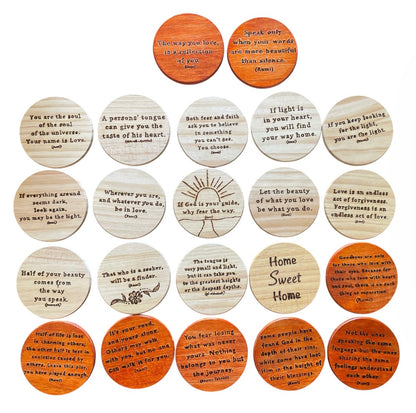 The way you love,
is a reflection
of you.
Speak only
when your words
are more beautiful
than silence.
(Rumi)
You are the soul
of the soul
of the universe.
Your name is Love.
(Rumi)
A persons' tongue
can give you the
taste of his heart.
Both fear and faith
ask you to believe
in something
you can't see.
You choose.
If light is
in your heart,
you will find
your way home.
(Rumi)
If you keep looking
for the light,
you are the light.
If everything around
seems dark,
look again,
you may be the light.
(Rumi)
Wherever you are,
and whatever you do,
be in love.
(Rumi)
If God is your guide,
why fear the way.
Let the beauty
of what you love
be what you do.
(Rumi)
Love is an endless
act of forgiveness.
Forgiveness is an
endless act of love.
Half of your beauty
comes from
the way
you speak.
That who is a seeker,
will be a finder.
(Rumi)
The tongue is
very small and light,
but it can take you
to the greatest heights
or the deepest depths.
Home
Sweet
Home
Goodbyes are only
for those who love with
their eyes. Because for
those who love with heart
and soul, there is no such
thing as separation.
(Rumi)
Half of life is lost
in charming others,
the other half is lost in
anxieties caused by
others. Leave this play,
you have played enough
(Rumi)
It's your road,
and yours alone.
Others may walk
with you, but no one
can walk it for you.
(Rumi)
You fear losing
what was never
yours. Nothing
belongs to you but
the journey.
Some people have
found God in the
depth of their sin,
while some have lost
Him in the height of
their blessings.
(Rumi)
Not the ones
speaking the same
language but the ones
sharing the same
feelings understand
each other.
(Rumi)